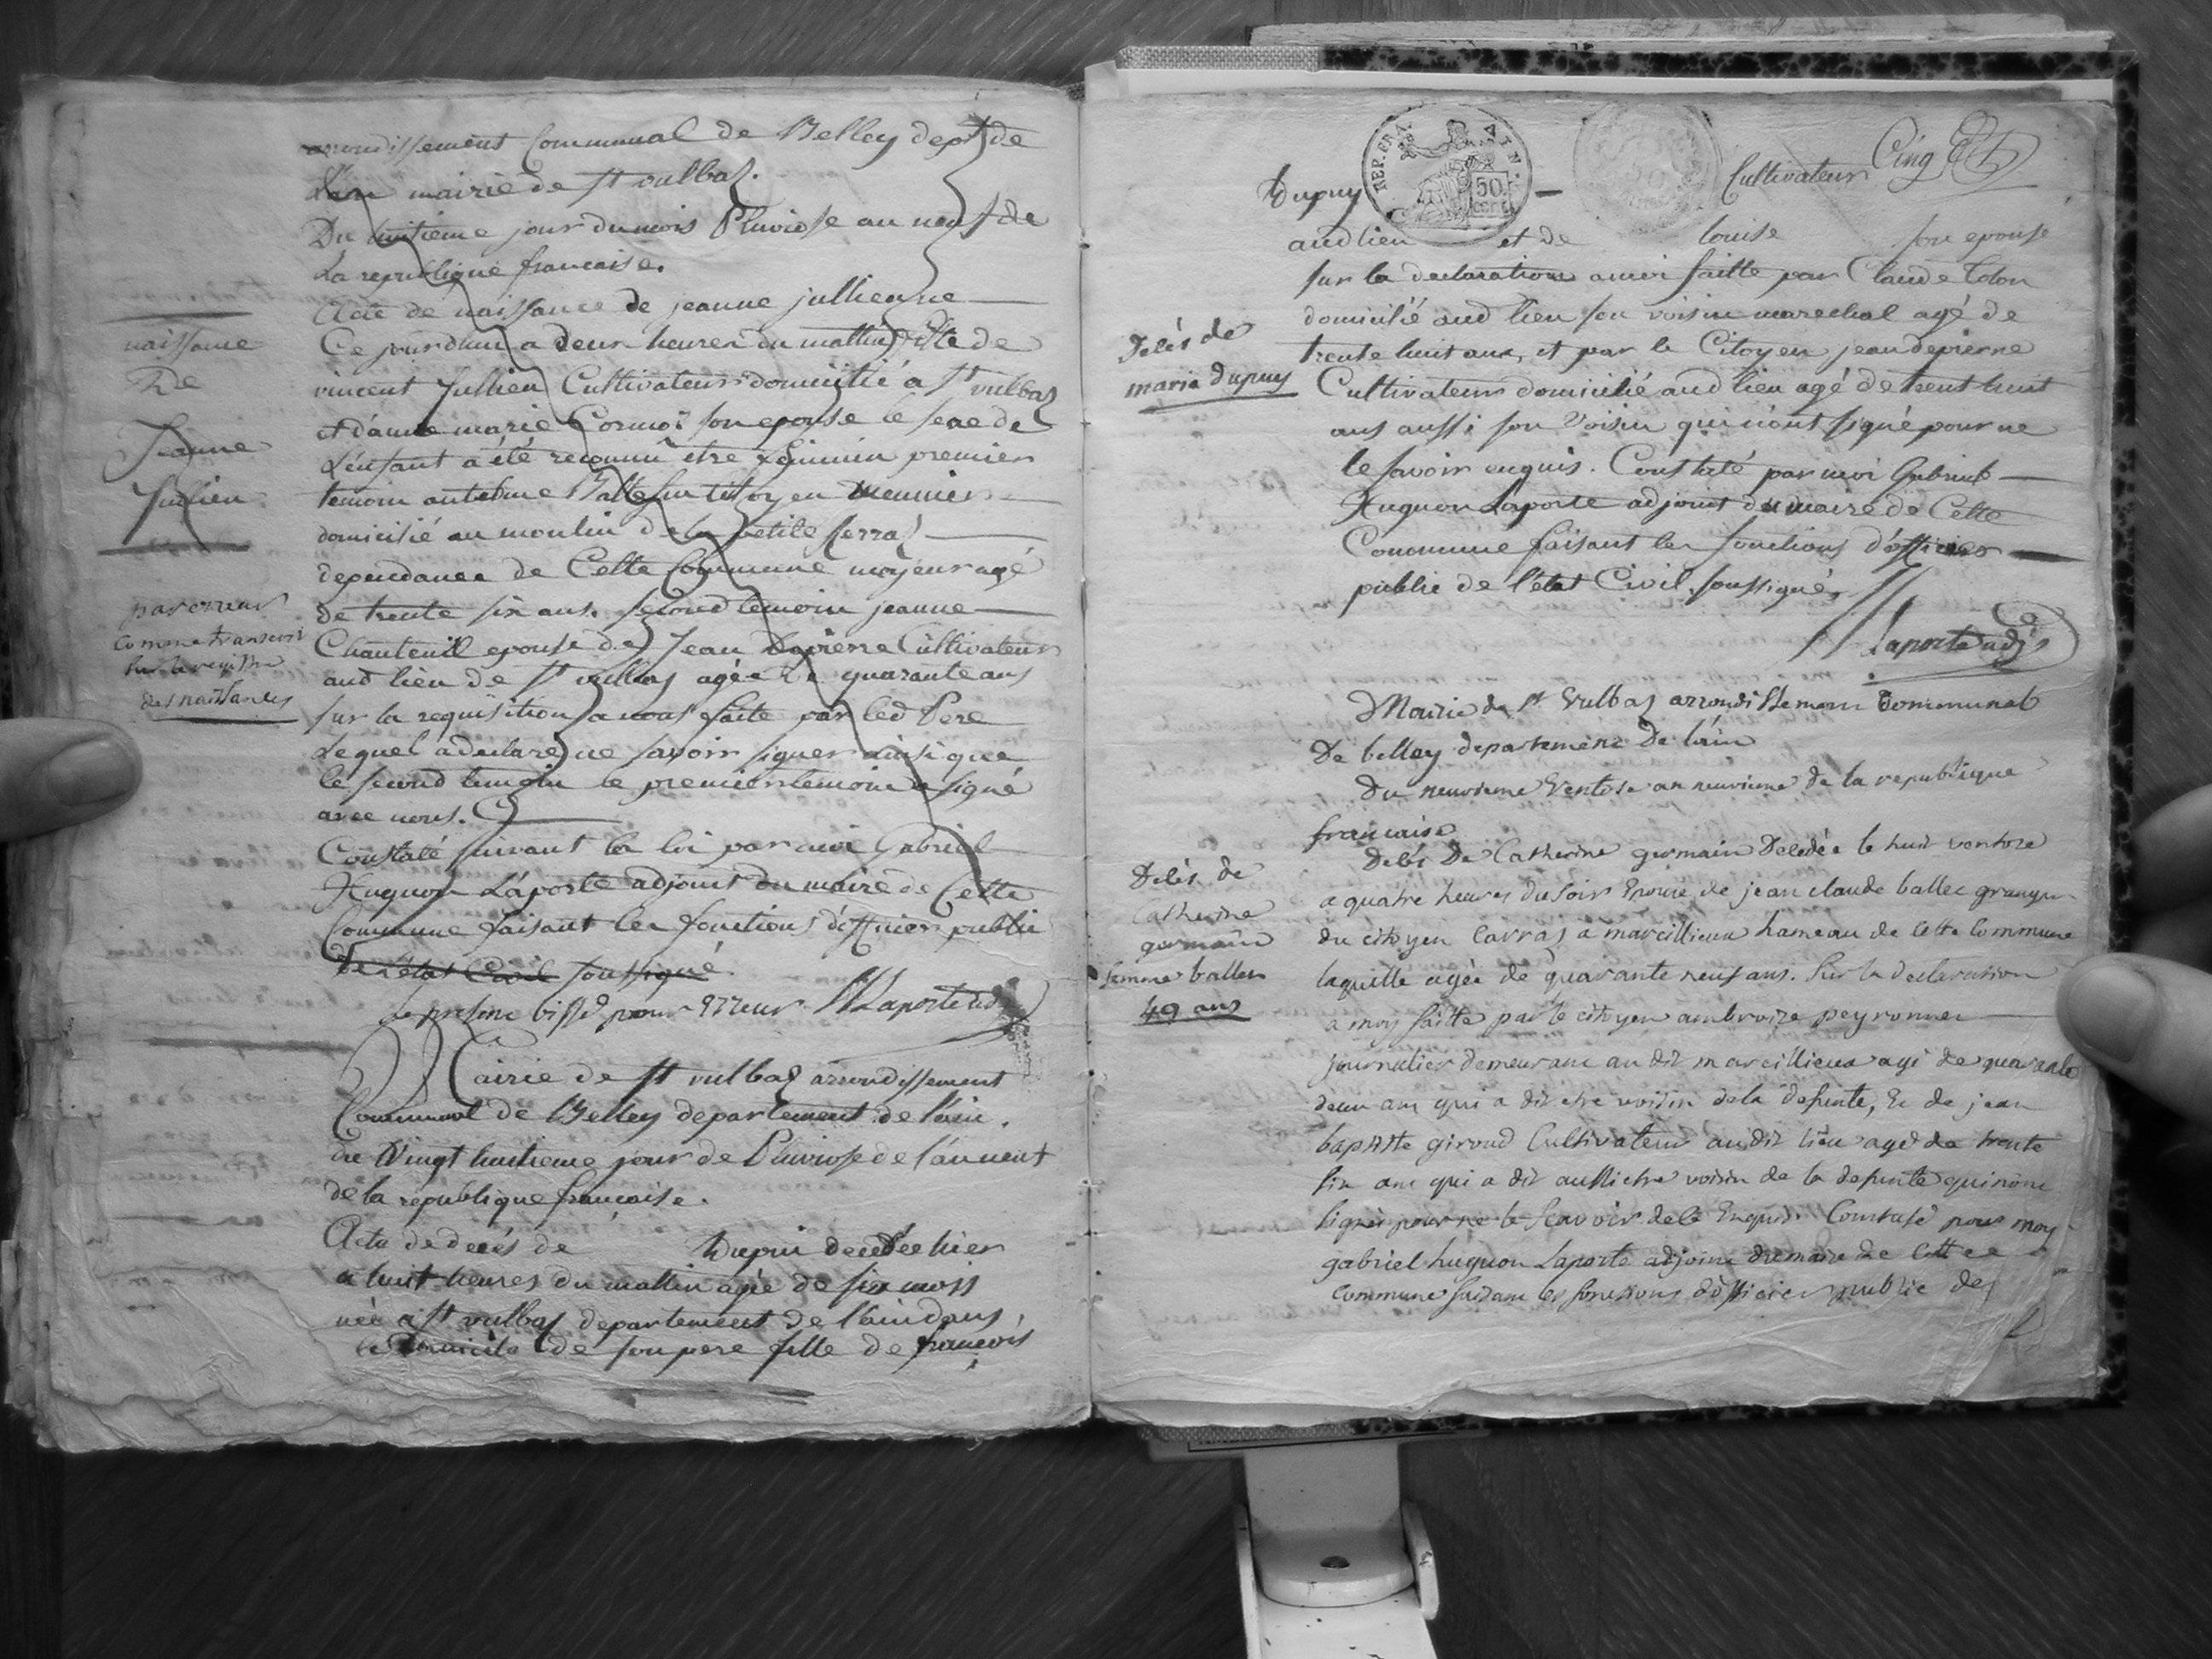 arrondissement Communal de Belley dept de
L'ain mairie de St vulbas.
Du huitieme jour du mois Pluviose an neuf de
La republique francaise.
Acte de naissance de jeanne jullienne
naissance
De
Jeanne
Julien
Ce jourdhui a deux heures du mattin fille de
vincent Jullien Cultivateur domicilié a St vulbas
et d'anne marie Cormoz son epouse le sexe de
L'enfant a été reconnu etre feminin premier
temoin antelme Ballet citoyen meunier
domicilié au moulin de la petite serraz
dependance de Cette Commune majeur agé
de trente six ans. second temoin jeanne
par erreur
Comme transcrit
sur le registre
des naissances
Chanteuil epouse de Jean Depierre Cultivateur
aud lieu de St vulbas agée de quarante ans
sur la requisition a nous faite par led Pere
Lequel a declaré ne savoir signer ainsi que
le second temoin le premier temoin a signé
avec nous.
Constaté suivant la loi par moi Gabriel
Huguon Laporte adjoint du maire de Cette
Commune faisant les fonctions d'officier public
de l'état Civil soussigné
Le present biffé pour erreur Laporte adj
Mairie de St vulbas arrondissement
Communal de Belley departement de l'ain.
du Vingt huitieme jour de Pluviose de l'an neuf
de la republique francaise.
Acte de decés de Dupui decedée hier
a huit heures du mattin agée de six mois
née a St vulbas departement de l'ain dans
le Domicile de son pere fille de françois
REP. FRA. AIN. 50 cent
Cinq
Dupuy — Cultivateur
aud lieu et de louise son epouse
sur la declaration a moi faitte par Claude Colon
domicilié aud lieu son voisin marechal agé de
Delés de
marie dupuy
trente huit ans, et par le Citoyen jean depierre
Cultivateur domicilié aud lieu agé de trent huit
ans aussi son Voisin qui n'ont signé pour ne
le savoir enquis. Constaté par moi Gabriel
Huguon Laporte adjoint du maire de Cette
Commune faisant les fonctions d'officier
public de l'état Civil soussigné,
Laporte adj
Mairie de St Vulbas arrondissement Communal
De belley departement De l'ain
Du neuvieme Ventose an neuvieme de la republique
francaise
Delés De Catherine germain Decedée le huit ventose
Delés de
Catherine
germain
femme ballet
49 ans
a quatre heures du soir Epouse de jean claude ballet granger
du citoyen Carraz a marcillieux hameau de cette Commune
laquelle agée de quarante neuf ans. sur la declaration
a moy faitte par le citoyen ambroize peyronnet
journalier demeurant au dit marcillieux agé de quarante
deux ans qui a dit etre voisin de la defunte, Et de jean
baptiste giroud Cultivateur audit lieu agé de trente
six ans qui a dit aussi etre voisin de la defunte qui n'ont
signés pour ne le scavoir de ce Enquis. Constaté par moy
gabriel huguon Laporte adjoint du maire de Cette
Commune faisant les fonctions d'officier public de